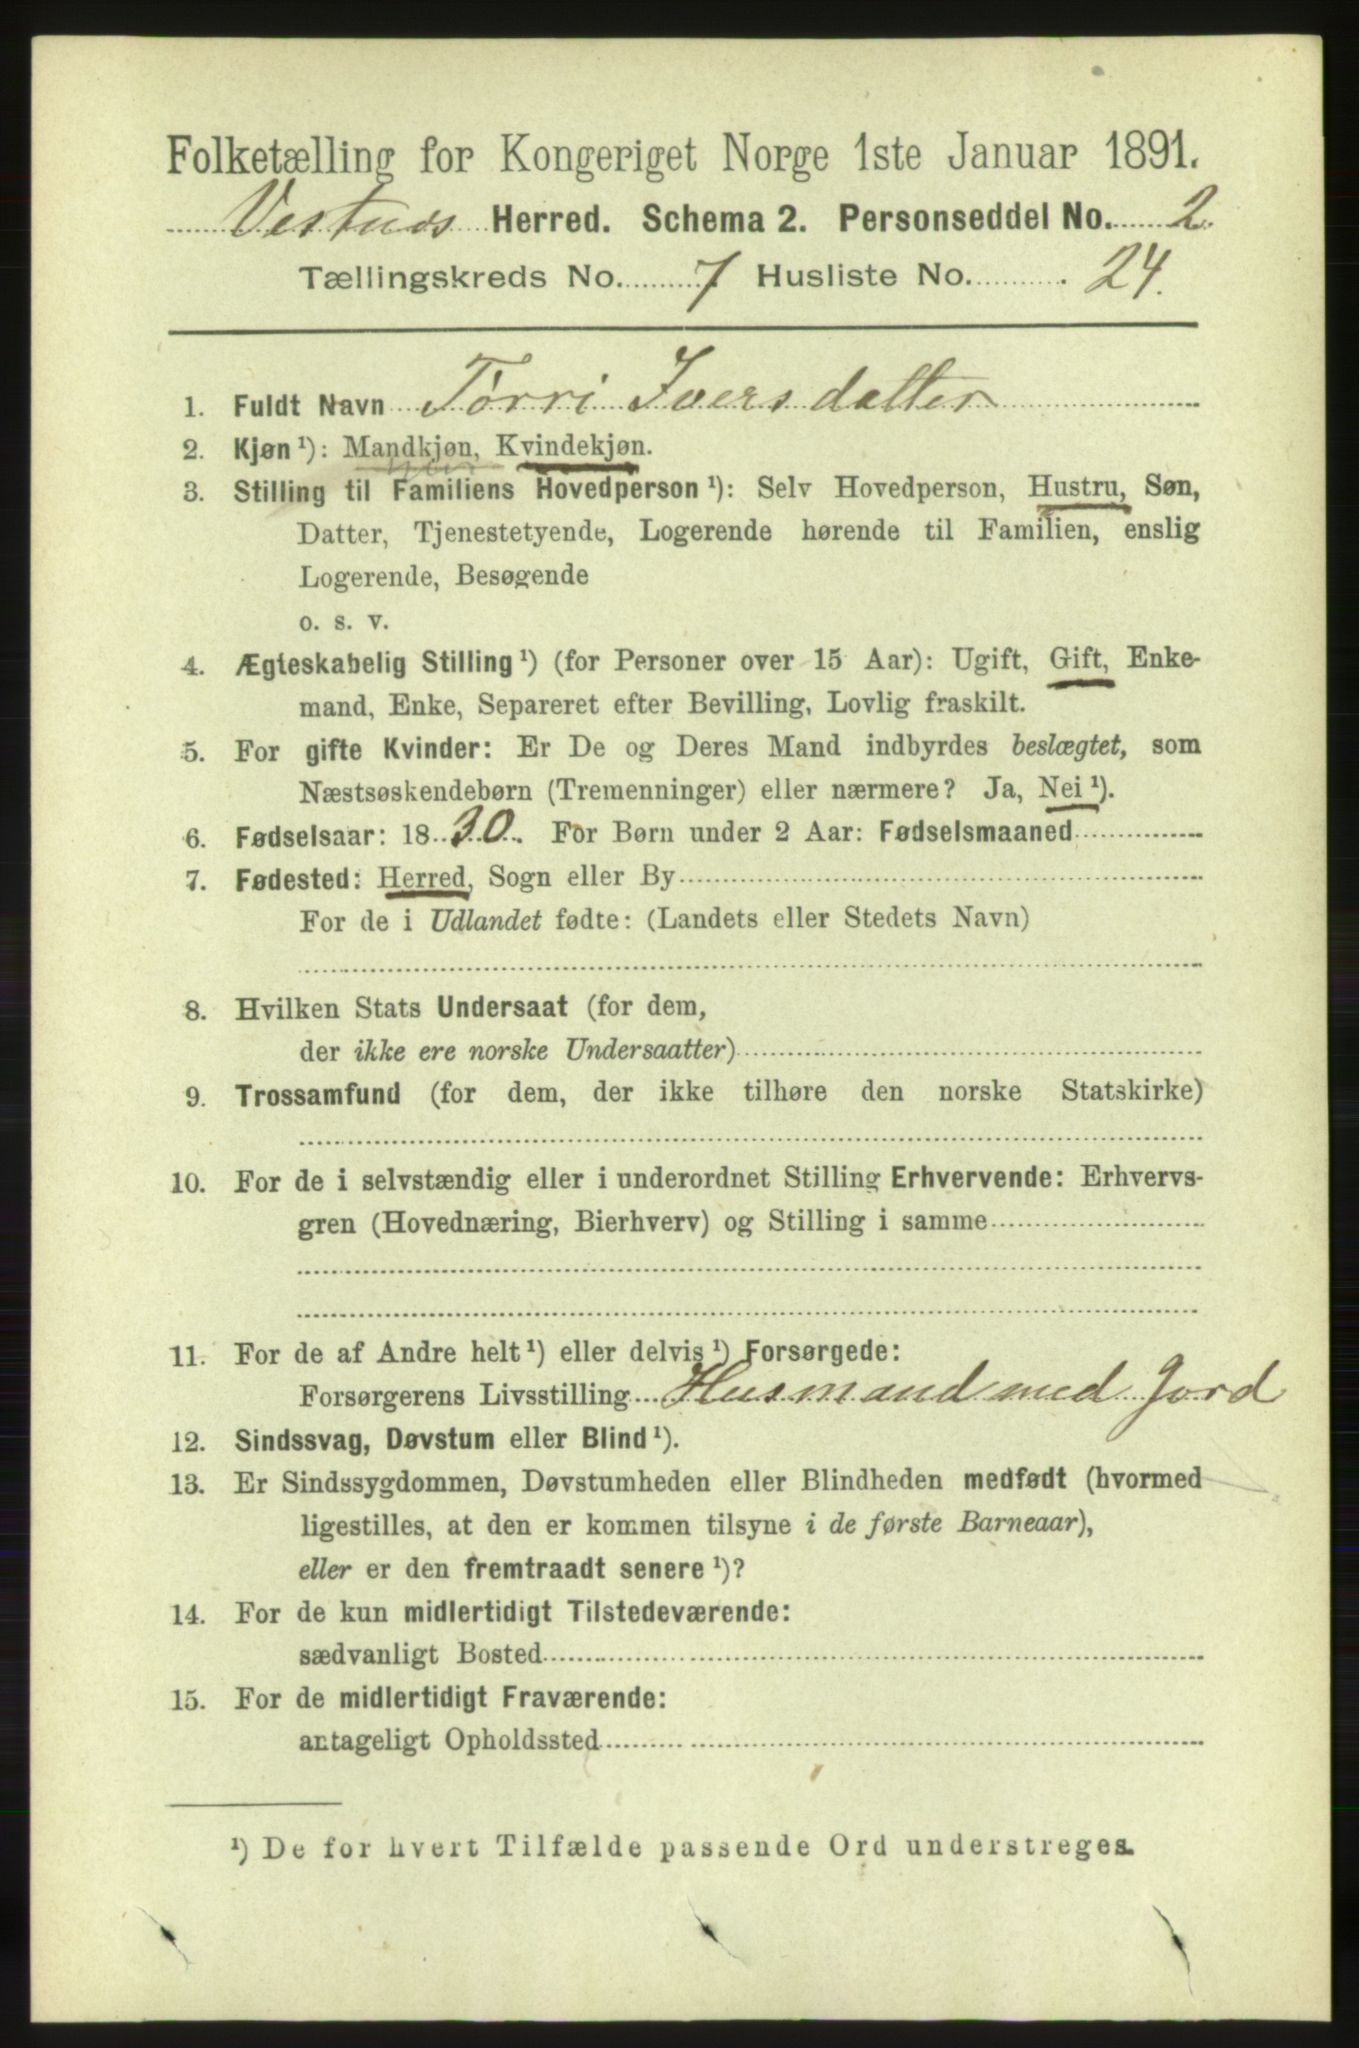 Folketælling for Kongeriget Norge 1ste Januar 1891.
Vestnæs Herred. Schema 2. Personseddel No. 2.
Tællingskreds No. 7. Husliste No. 24.
1. Fuldt Navn Tørri Iversdatter
2. Kjøn ¹): Mandkjøn, Kvindekjøn.
3. Stilling til Familiens Hovedperson ¹): Selv Hovedperson, Hustru, Søn,
Datter, Tjenestetyende, Logerende hørende til Familien, enslig
Logerende, Besøgende
o. s. v.
4. Ægteskabelig Stilling ¹) (for Personer over 15 Aar): Ugift, Gift, Enke-
mand, Enke, Separeret efter Bevilling, Lovlig fraskilt.
5. For gifte Kvinder: Er De og Deres Mand indbyrdes beslægtet, som
Næstsøskendebørn (Tremenninger) eller nærmere? Ja, Nei ¹).
6. Fødselsaar: 1830. For Børn under 2 Aar: Fødselsmaaned
7. Fødested: Herred, Sogn eller By
For de i Udlandet fødte: (Landets eller Stedets Navn)
8. Hvilken Stats Undersaat (for dem,
der ikke ere norske Undersaatter)
9. Trossamfund (for dem, der ikke tilhøre den norske Statskirke)
10. For de i selvstændig eller i underordnet Stilling Erhvervende: Erhvervs-
gren (Hovednæring, Bierhverv) og Stilling i samme
11. For de af Andre helt ¹) eller delvis ¹) Forsørgede:
Forsørgerens Livsstilling Husmand med Jord
12. Sindssvag, Døvstum eller Blind ¹).
13. Er Sindssygdommen, Døvstumheden eller Blindheden medfødt (hvormed
ligestilles, at den er kommen tilsyne i de første Barneaar),
eller er den fremtraadt senere ¹)?
14. For de kun midlertidigt Tilstedeværende:
sædvanligt Bosted
15. For de midlertidigt Fraværende:
antageligt Opholdssted
¹) De for hvert Tilfælde passende Ord understreges.